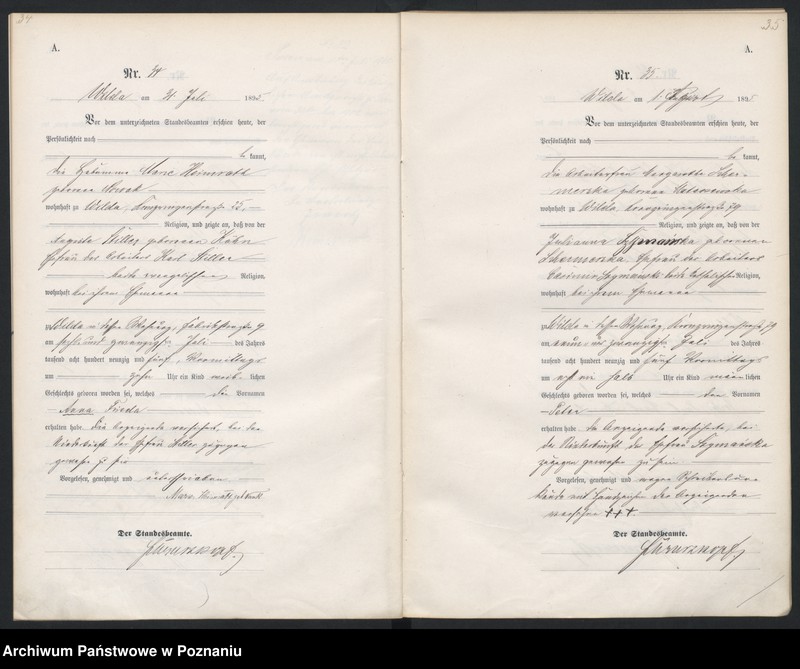 34
A.
Nr. 34
Wilda am 31 Juli 1895
Vor dem unterzeichneten Standesbeamten erschien heute, der
Persönlichkeit nach
be kannt,
die Hebamme Marie Heimrath
geborene Nowak
wohnhaft zu Wilda,
Religion, und zeigte an, daß von der
Auguste Hiller geborenen Hahn
Ehefrau des Arbeiters Karl Hiller
beide evangelischer Religion,
wohnhaft bei ihrem Ehemanne
zu Wilda in dessen Wohnung, Fabrikstraße 9
am sechs und zwanzigsten Juli des Jahres
tausend acht hundert neunzig und fünf, Vormittags
um zehn Uhr ein Kind weib lichen
Geschlechts geboren worden sei, welches den Vornamen
Anna Frieda
erhalten habe. Die Anzeigende versichert, bei der
Niederkunft der Ehefrau Hiller zugegen
gewesen zu sein
Vorgelesen, genehmigt und unterschrieben
Der Standesbeamte.
35
A.
Nr. 35
Wilda am 1. August 1895
Vor dem unterzeichneten Standesbeamten erschien heute, der
Persönlichkeit nach
be kannt,
die Arbeiterfrau Margarethe
geborene
wohnhaft zu Wilda, 79
Religion, und zeigte an, daß von der
Julianna Szymańska geborenen
Ehefrau des Arbeiters
Casimir Szymański beide katholischer Religion,
wohnhaft bei ihrem Ehemanne
zu Wilda in dessen Wohnung, 79
am neun und zwanzigsten Juli des Jahres
tausend acht hundert neunzig und fünf Vormittags
um ein halb Uhr ein Kind männlichen
Geschlechts geboren worden sei, welches den Vornamen
Peter
erhalten habe. Die Anzeigende versicherte, bei
der Niederkunft der Ehefrau Szymańska
zugegen gewesen zu sein
Vorgelesen, genehmigt und wegen Schreibens
mit Handzeichen der Anzeigenden
versehen +++
Der Standesbeamte.
Archiwum Państwowe w Poznaniu